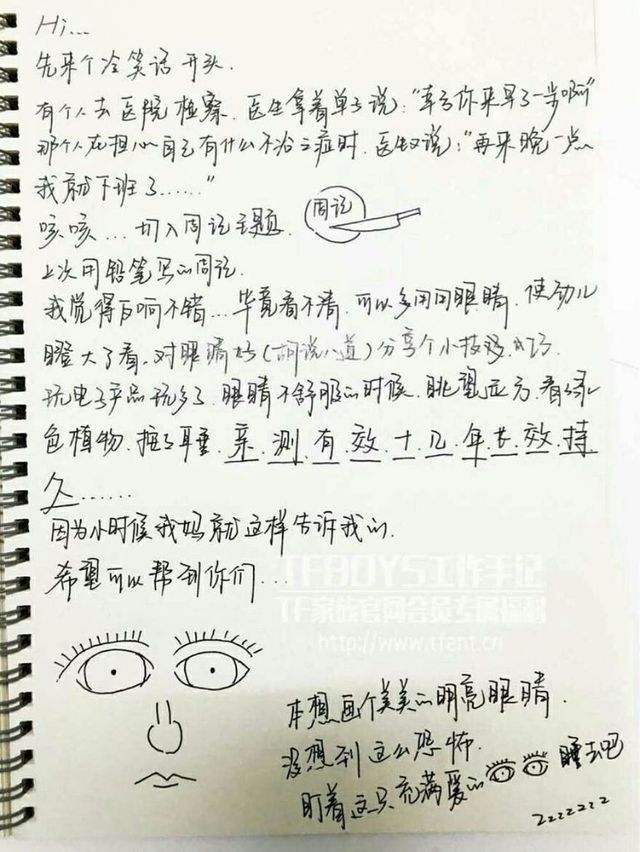 Hi...
先来个冷笑话开头.
有个人去医院检察.医生拿着单子说:"幸亏你来早了一步啊"
那个人在担心自己有什么不治之症时.医生又说:"再来晚一点
我就下班了......"
咳咳...切入周记主题. 周记
上次用铅笔写的周记.
我觉得反响不错...毕竟看不清.可以多用用眼睛.使劲儿
瞪大了看.对眼睛好(胡说八道)分享个小技巧.
玩电子产品玩多了.眼睛不舒服的时候.眺望远方.看绿
色植物.捏了耳垂.亲.测.有.效.十.几.年.长.效.持.
久......
因为小时候我妈就这样告诉我的.
希望可以帮到你们...
TFBOYS工作手记
TF家族官网会员专属福利
http://www.tfent.cn
本想画个美美的明亮眼睛.
没想到这么恐怖.
盯着这只充满爱的 睡去吧
zzzzzzz